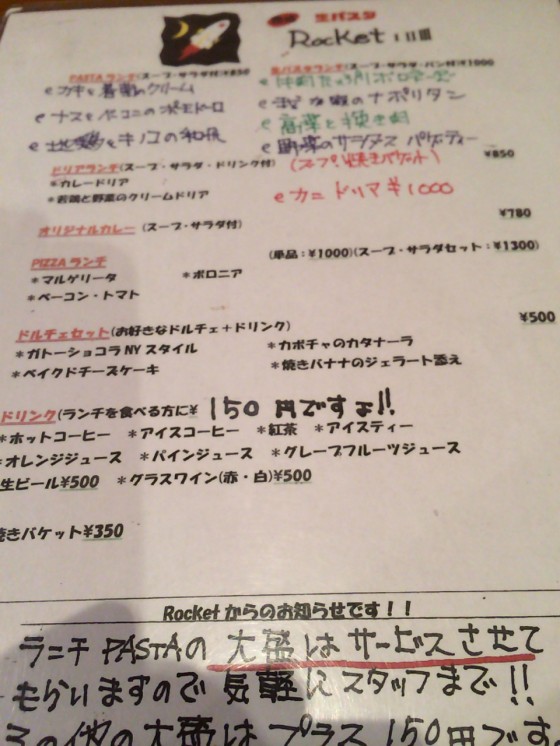 生パスタ
Rocket I II III
PASTAランチ(スープ・サラダ付)¥850
生パスタランチ(スープ・サラダ・パン付)¥1000
のクリーム
ナスとベーコンのポモドーロ
のナポリタン
地鶏とキノコの和風
野菜のサラダスパゲッティー
ドリアランチ(スープ・サラダ・ドリンク付)
(スープ、焼きバケット)
¥850
*カレードリア
*若鶏と野菜のクリームドリア
カニドリア ¥1000
オリジナルカレー (スープ・サラダ付)
¥780
PIZZAランチ
(単品:¥1000)(スープ・サラダセット:¥1300)
*マルゲリータ *ボロニア
*ベーコン・トマト
ドルチェセット(お好きなドルチェ+ドリンク)
¥500
*ガトーショコラNYスタイル *カボチャのカタナーラ
*ベイクドチーズケーキ *焼きバナナのジェラート添え
ドリンク(ランチを食べる方に¥ 150円ですよ!!
*ホットコーヒー *アイスコーヒー *紅茶 *アイスティー
*オレンジジュース *パインジュース *グレープフルーツジュース
生ビール¥500 *グラスワイン(赤・白)¥500
焼きバケット¥350
Rocketからのお知らせです!!
ランチPASTAの大盛はサービスさせて
もらいますので気軽にスタッフまで!!
その他の大盛はプラス150円です